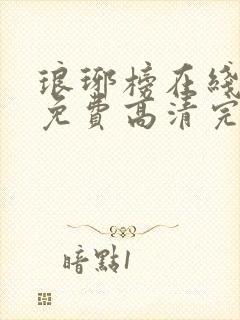 琅琊榜在綫
免費高清完
暗點1